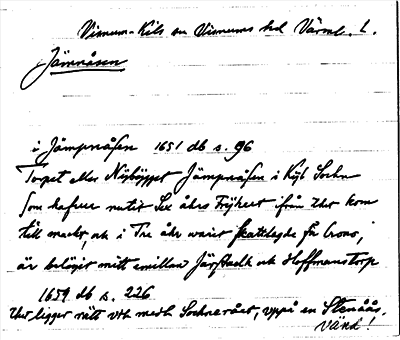 Visnum-Kils sn Visnums hd Värml. L.
Jämnåsen
i Jämpnåsen 1651 db s. 96
Torpet eller Nybögget Jämpnåsen i Kijl Sochn
som hafuer nutit Sex åhrs frijheet ifrån thet kom
till macht, och i Tre åhr warit skatlagde för Crono,
är belägit mitt emillan Järstadh och Hoffmanstorp
1659 db s. 226
Ther ligger rätt vth medh Sochnerået, vppå en Stenåås.
Vänd!